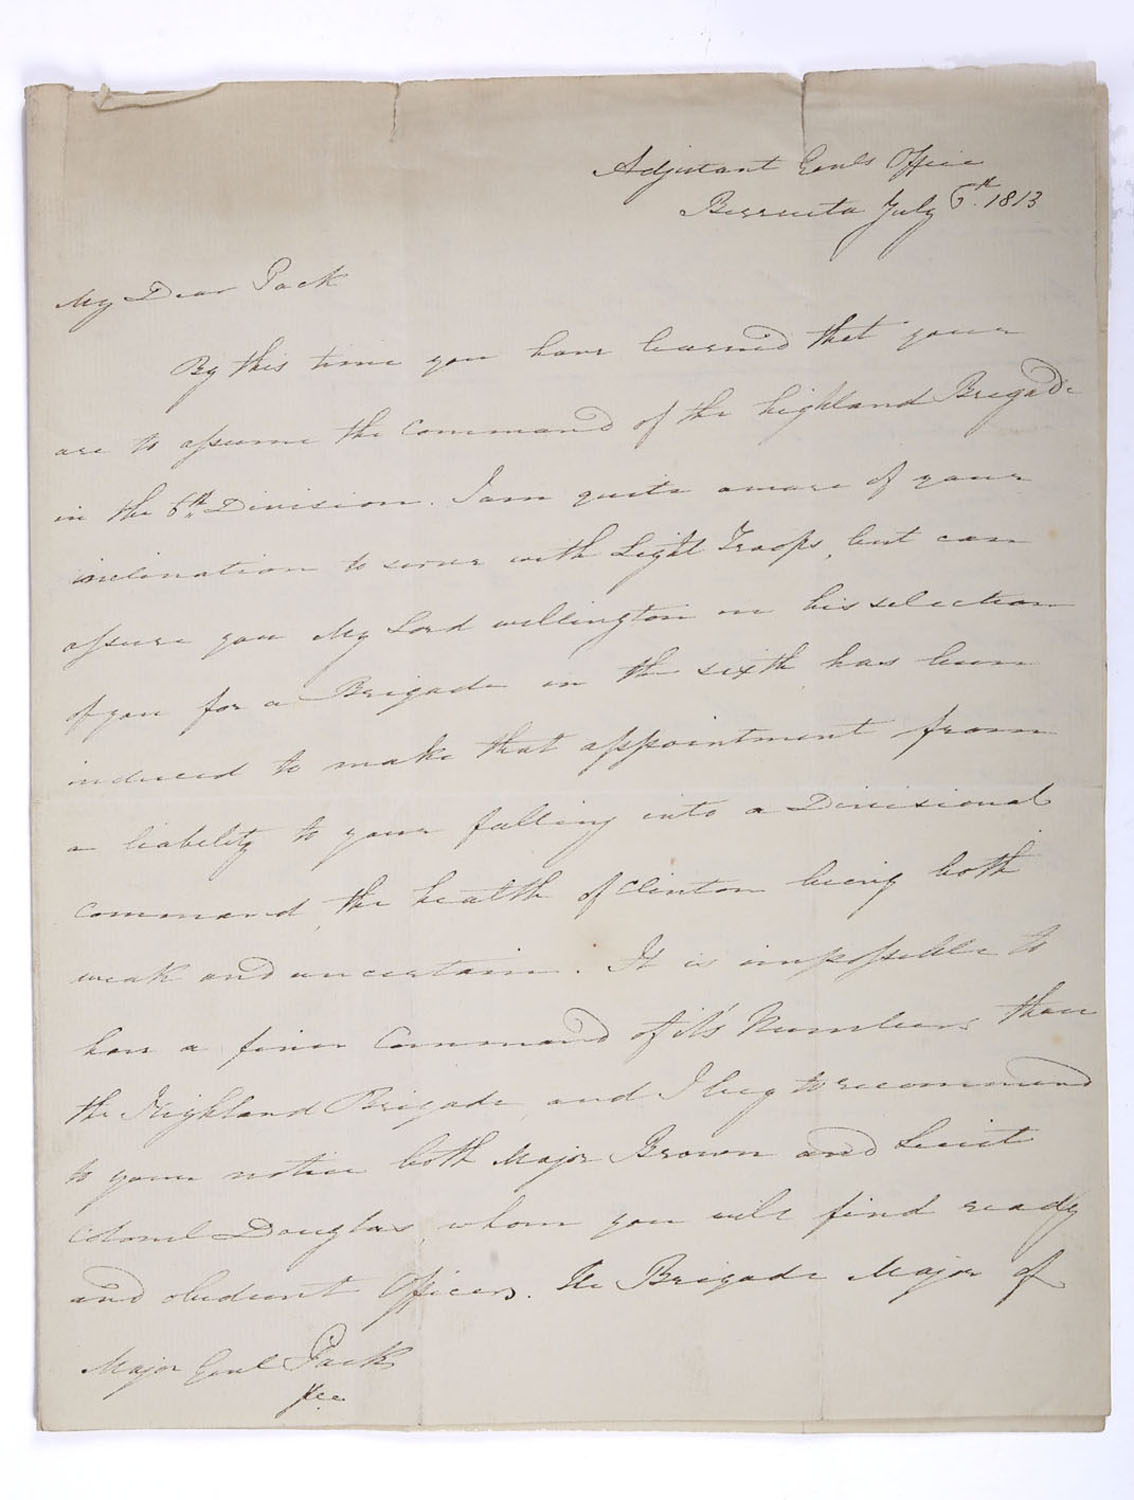 Adjutant Genls Office
Berrueta July 6th. 1813
My Dear Pack
By this time you have learned that your
are to assume the Command of the highland Brigade
in the 6th Division. I am quite aware of your
inclination to serve with Light Troops, but can
assure you My Lord wellington in his selection
of you for a Brigade in the sixth has been
induced to make that appointment from
a liability to your falling into a Divisional
command, the health of Clinton being both
weak and uncertain. It is impossible to
have a finer Command of it's Numbers than
the Highland Brigade, and I beg to recommend
to your notice both Major Brown and Lieut
Colonel Douglas, whom you will find ready
and obedient Officers. The Brigade Major of
Major Genl Pack
&c.c